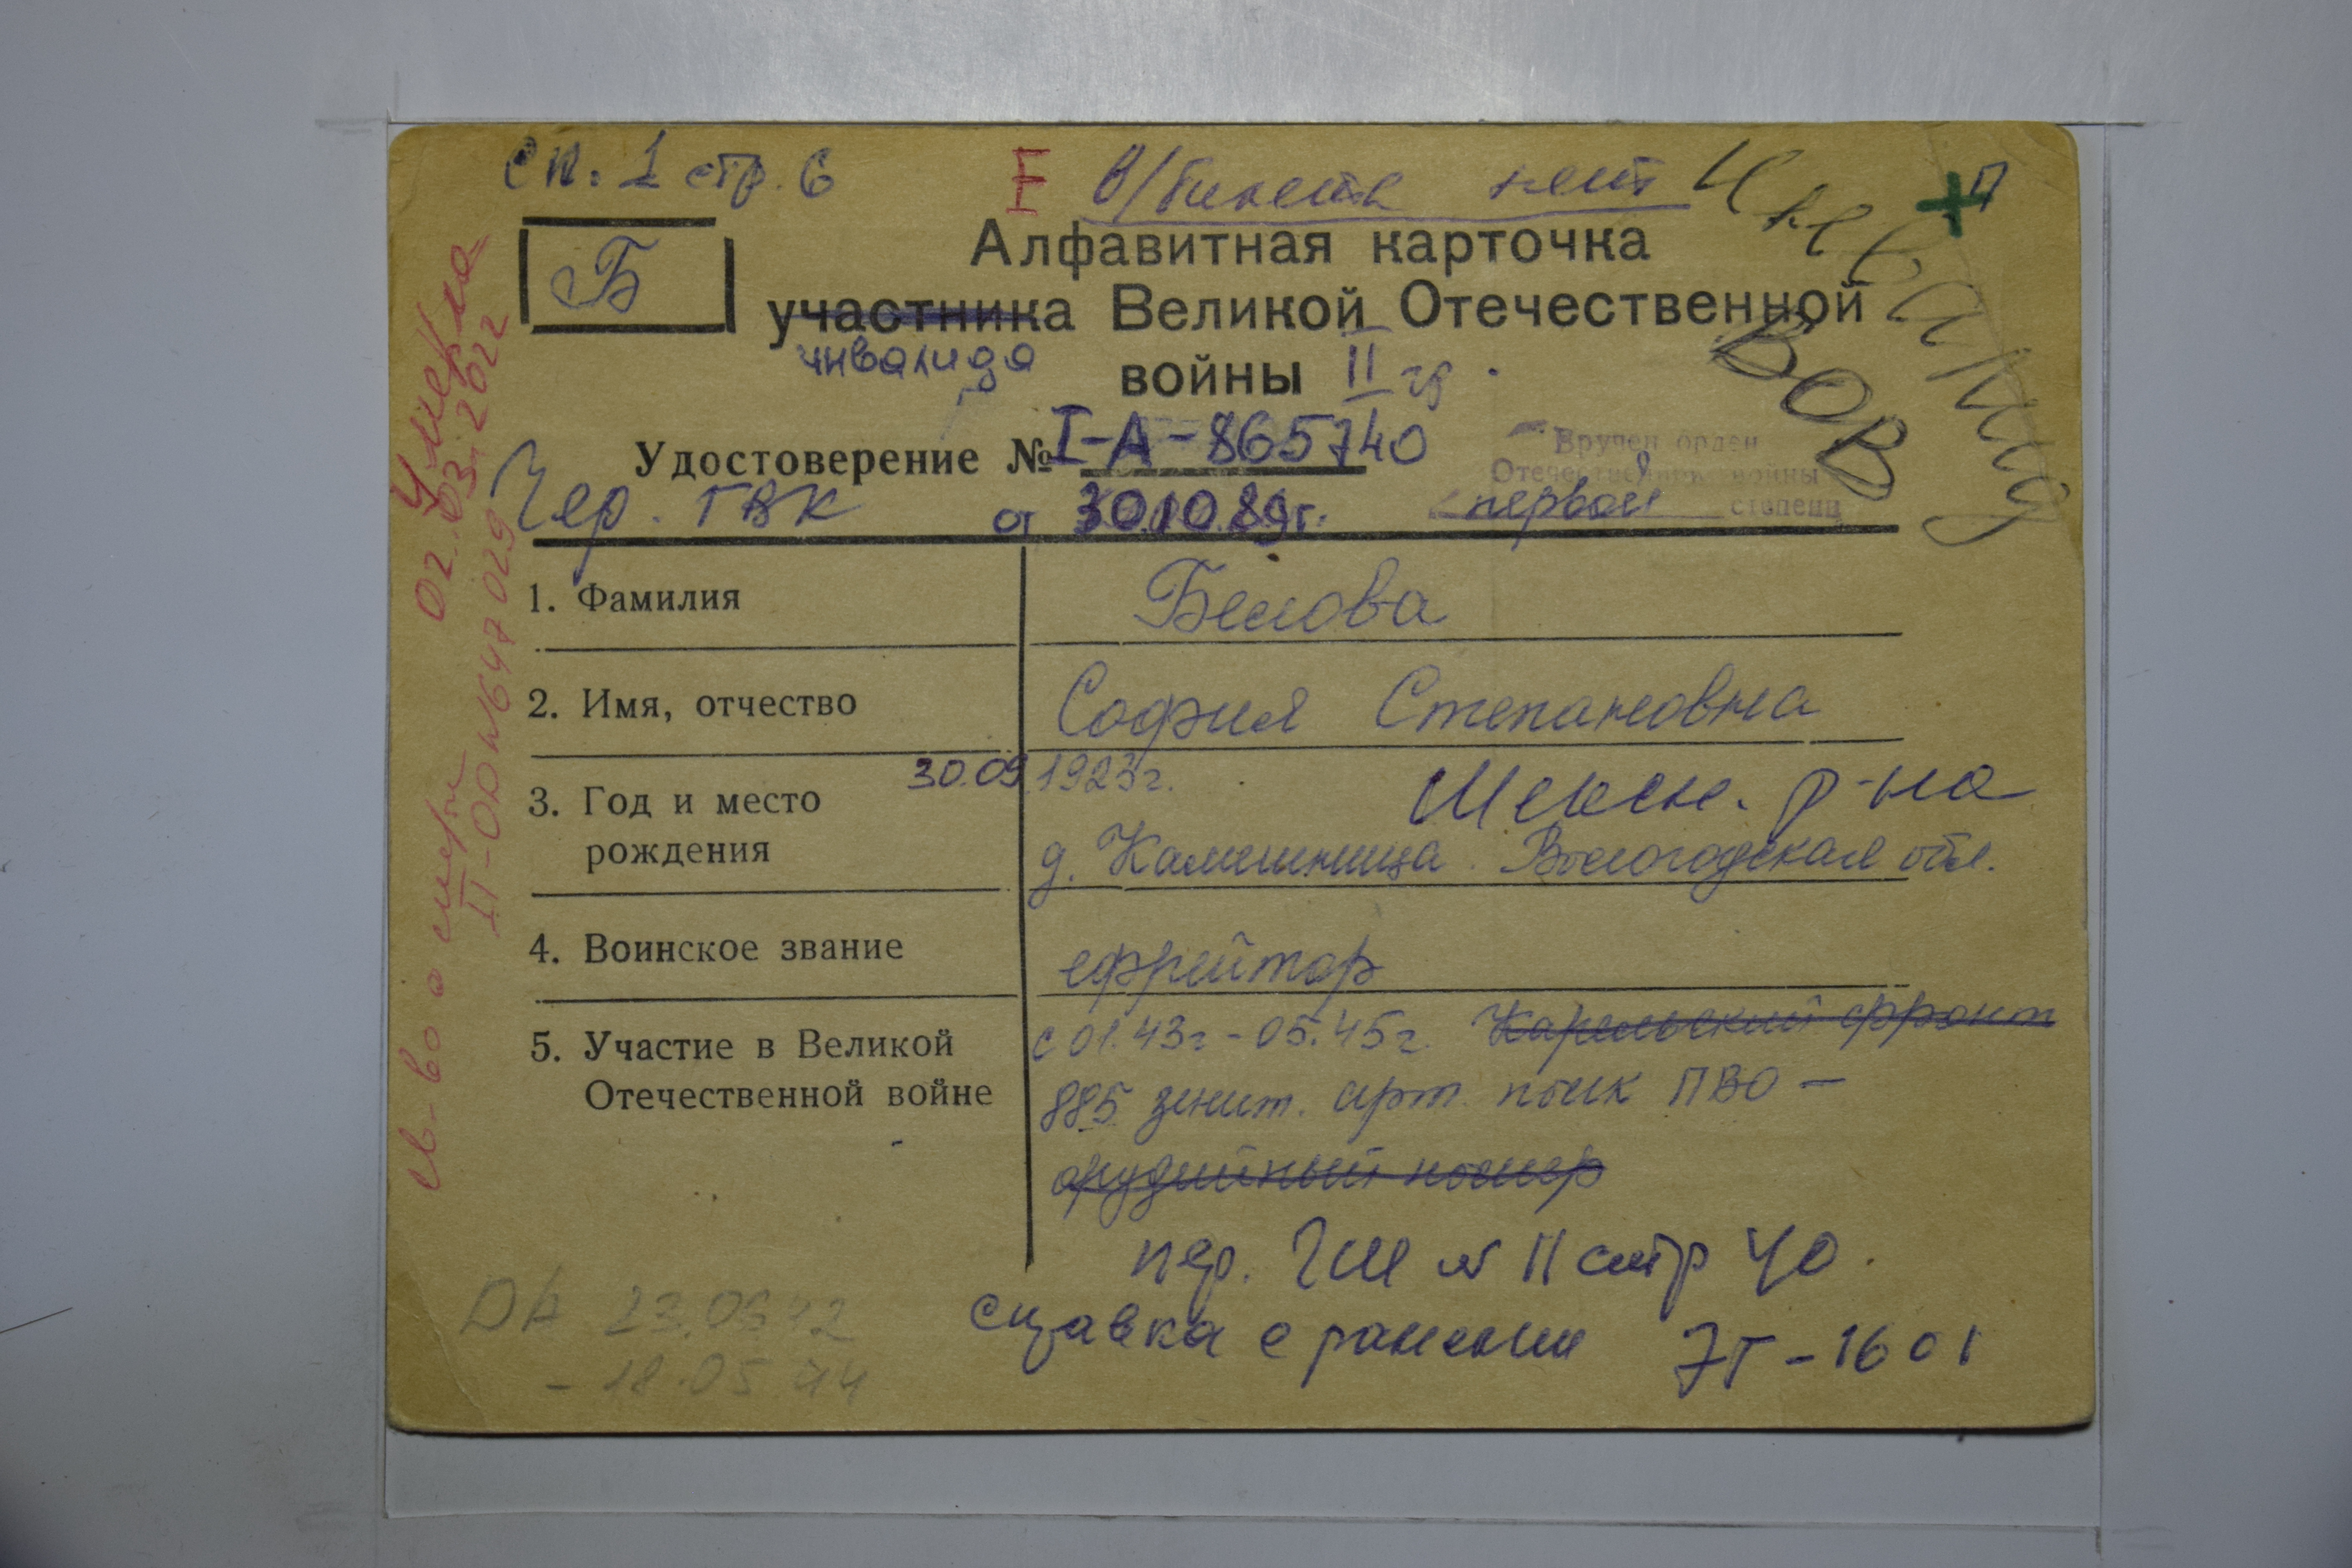 сп. 1 стр. 6
I в/билета нет
Инвалид
ВОВ
+ п
Б
Алфавитная карточка
участника Великой Отечественной
инвалида
войны II гр.
Удостоверение № I-А-865740
Чер. ГВК от 30.10.89г.
Вручен орден
Отечественной войны
первой степени
1. Фамилия Белова
2. Имя, отчество София Степановна
3. Год и место 30.09 1923г. Шексн. р-на
рождения д. Камешница Вологодская обл.
4. Воинское звание ефрейтор
5. Участие в Великой с 01.43г - 05.45г. Карельский фронт
Отечественной войне 885 зенит. арт. полк ПВО -
орудийный номер
пер. ГШ № 11 стр 40.
справка о ранении 7Т-1601
ДА 23.06.42
- 18.05.44
Умерла
02.03.2022
св-во о смерти
II-ОД №647029